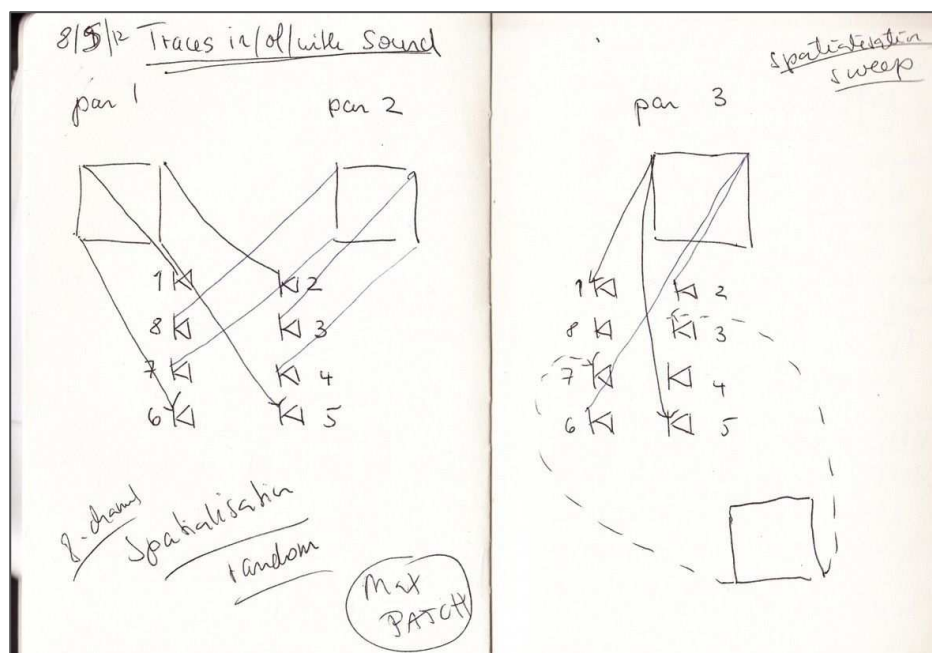 8/5/12 Traces in/of/with Sound
pan 1
pan 2
1
2
8
3
7
4
6
5
8-channel
Spatialisation
random
Max
PATCH
spatialisation
sweep
pan 3
1
2
8
3
7
4
6
5